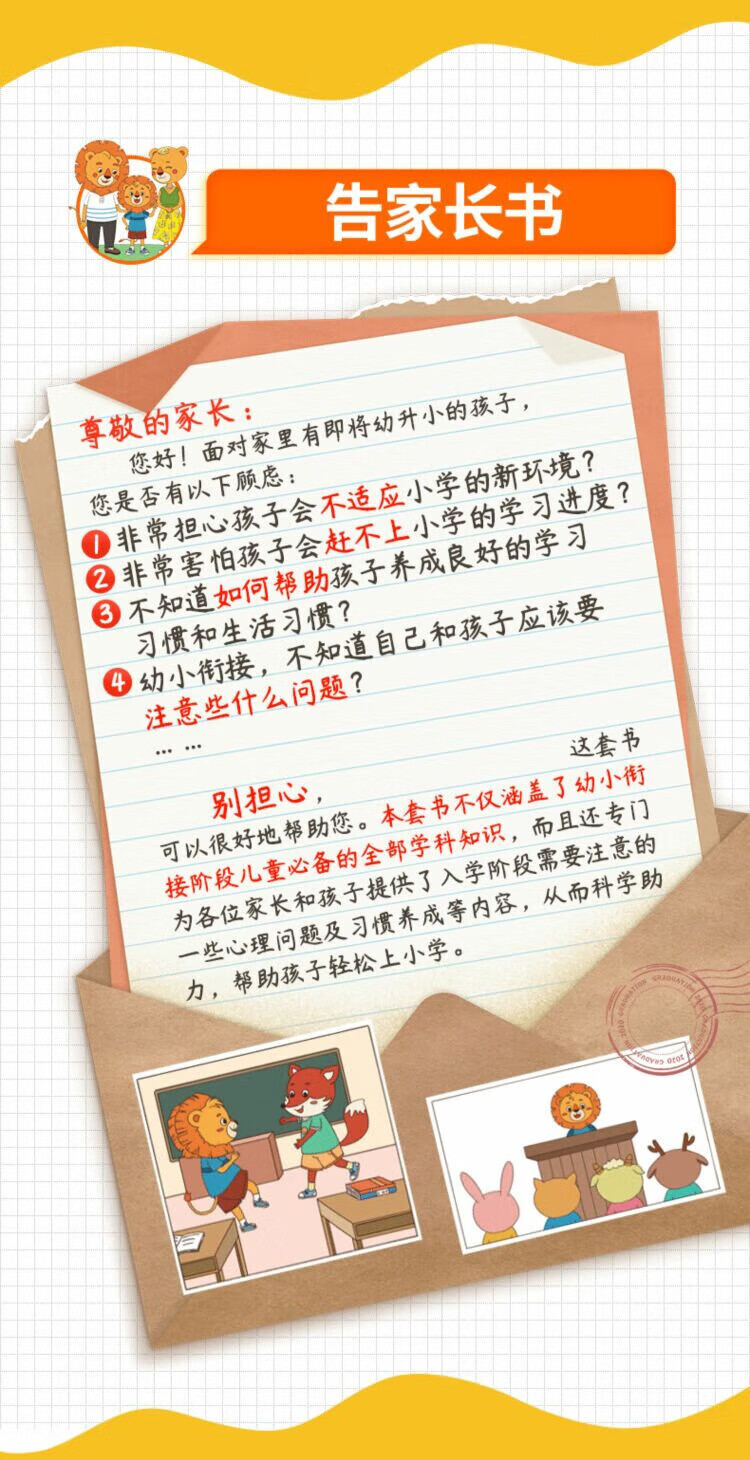 告家长书
尊敬的家长：
您好！面对家里有即将幼升小的孩子，
您是否有以下顾虑：
1 非常担心孩子会不适应小学的新环境？
2 非常害怕孩子会赶不上小学的学习进度？
3 不知道如何帮助孩子养成良好的学习
习惯和生活习惯？
4 幼小衔接，不知道自己和孩子应该要
注意些什么问题？
… …
别担心， 这套书
可以很好地帮助您。本套书不仅涵盖了幼小衔
接阶段儿童必备的全部学科知识，而且还专门
为各位家长和孩子提供了入学阶段需要注意的
一些心理问题及习惯养成等内容，从而科学助
力，帮助孩子轻松上小学。
GRADUATION 2020 GRADUATION 2020 GRADUATION 2020